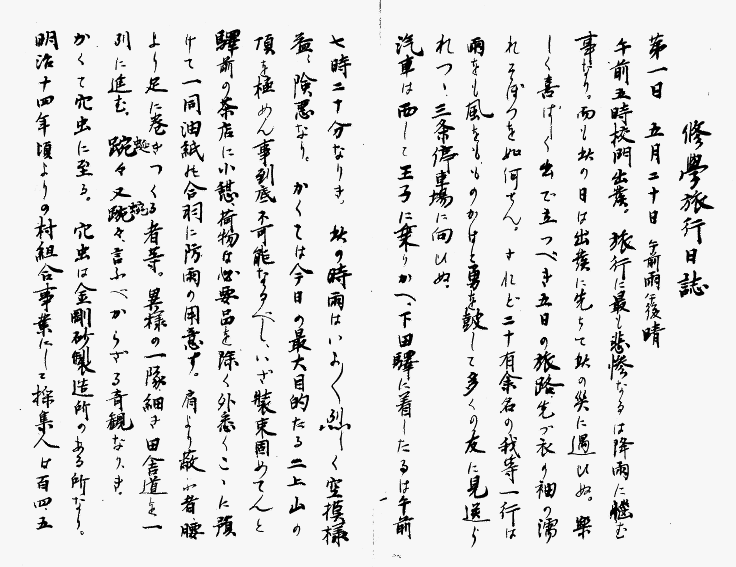 修學旅行日誌
第一日 五月二十日 午前雨午後晴
午前五時校門出発。旅行に最も悲惨なるは降雨に悩む
事なり。而も此の日は出発に先ちて此の災に遇ひぬ。楽
しく喜ばしく出で立つべき五日の旅路先づ衣の袖の濡
れそぼつを如何せん。されど二十有余名の我等一行は
雨をも風をもものかはと勇を鼓して多くの友に見送ら
れつゝ三条停車場に向ひぬ。
汽車は而して王子に乗りかへ、下田驛に着したるは午前
七時二十分なりき。此の時雨はいよ〱烈しく空模様
益々険悪なり。かくては今日の最大目的たる二上山の
頂を極めん事到底不可能なるべし、いざ装束固めてんと
驛前の茶店に小憩、荷物な必要品を除く外悉くこゝに預
けて一同油紙の合羽に防雨の用意す。肩より蔽ふ者、腰
より足に巻きつくる者等。異様の一隊細き田舎道を一
列に進む。蜿々又蜿々言ふべからざる奇観なりき。
かくて穴虫に至る。穴虫は金剛砂製造所のある所なり。
明治十四年頃よりの村組合事業にして採集人は百四、五